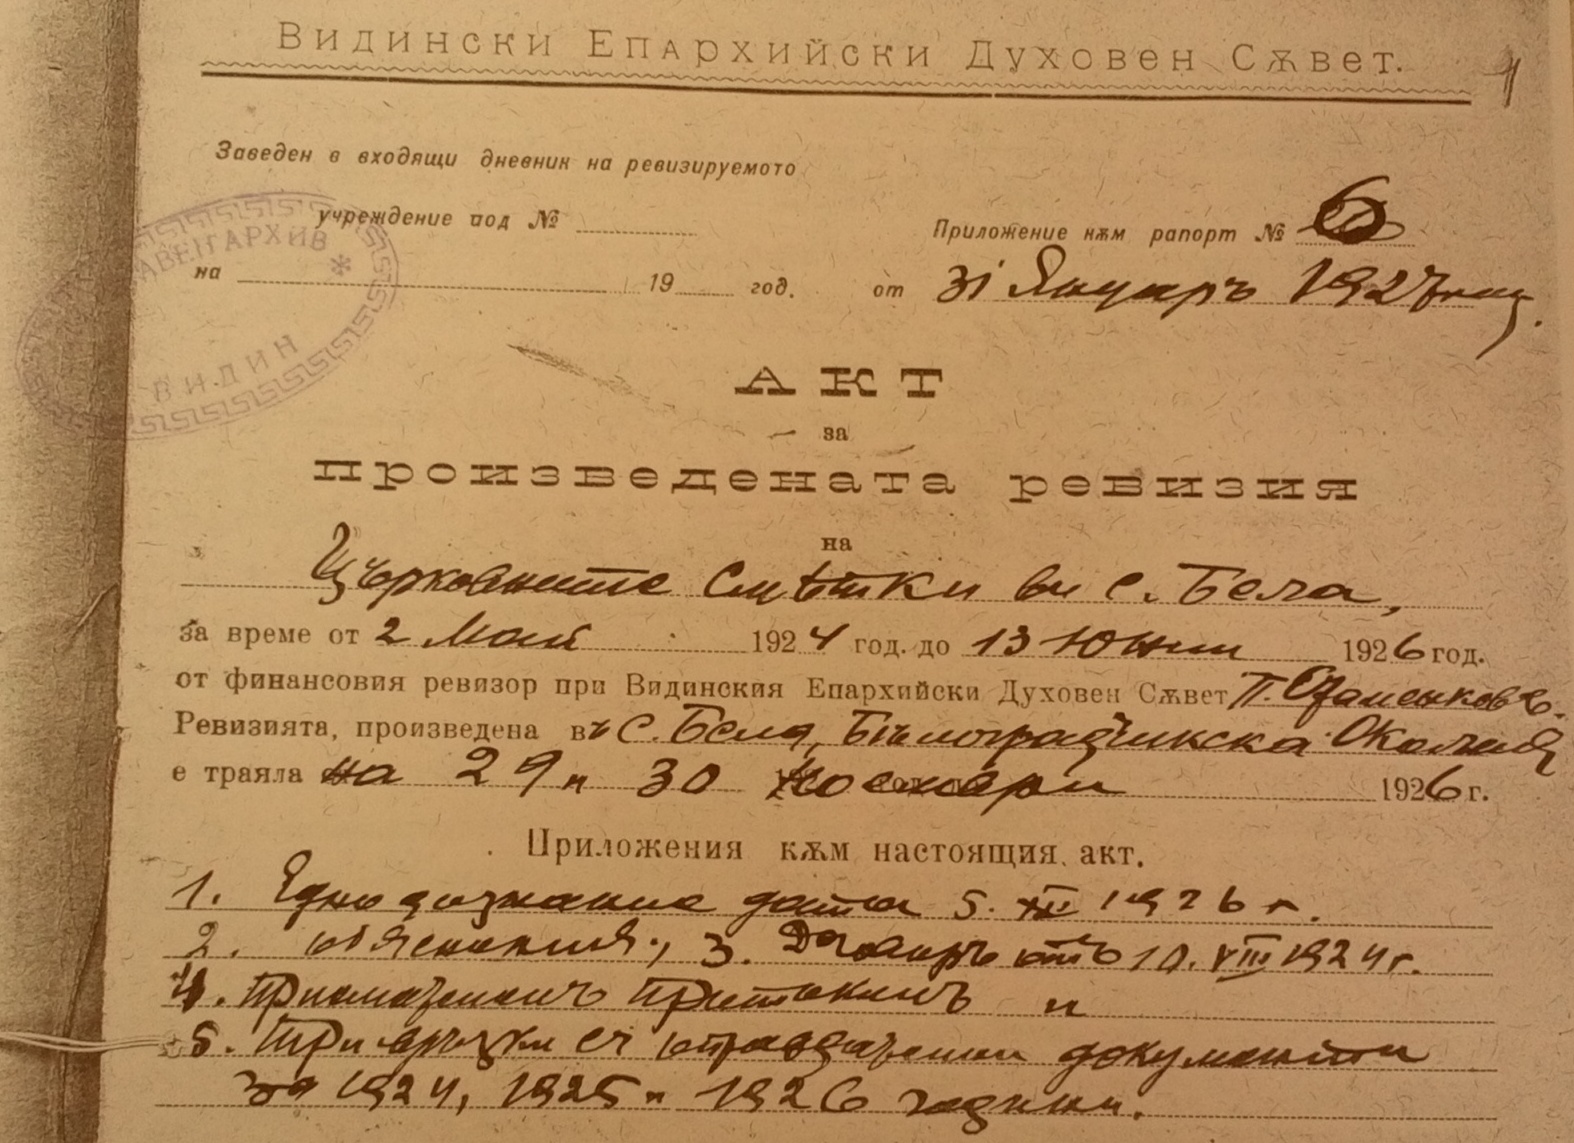 Видински Епархийски Духовен Сѫвет.
1
Заведен в входящи дневник на ревизируемото
учреждение под №
Приложение кѫм рапорт № 6
на 19 год. от 31 Януаръ 1927
АВЕН АРХИВ
ВИДИН
АКТ
за
произведената ревизия
на
Църковните Смѣтки въ с. Бела,
за време от 2 Май 1924 год. до 13 Юни 1926 год.
от финансовия ревизор при Видинския Епархийски Духовен Сѫвет П.
Ревизията, произведена въ с. Бела, Бѣлоградчикска Околия
е траяла на 29 и 30 Ноември 1926 г.
Приложения кѫм настоящия акт.
1. Едно дознание дата 5. XII 1926 г.
2. обяснения, 3. Договоръ отъ 10. VIII 1924 г.
4. Приложенъ и
5. Три връзки съ оправдателни документи
за 1924, 1925 и 1926 години.